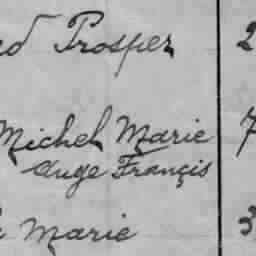 Prosper 2
Michel Marie 7
Ange Françis
Marie 3